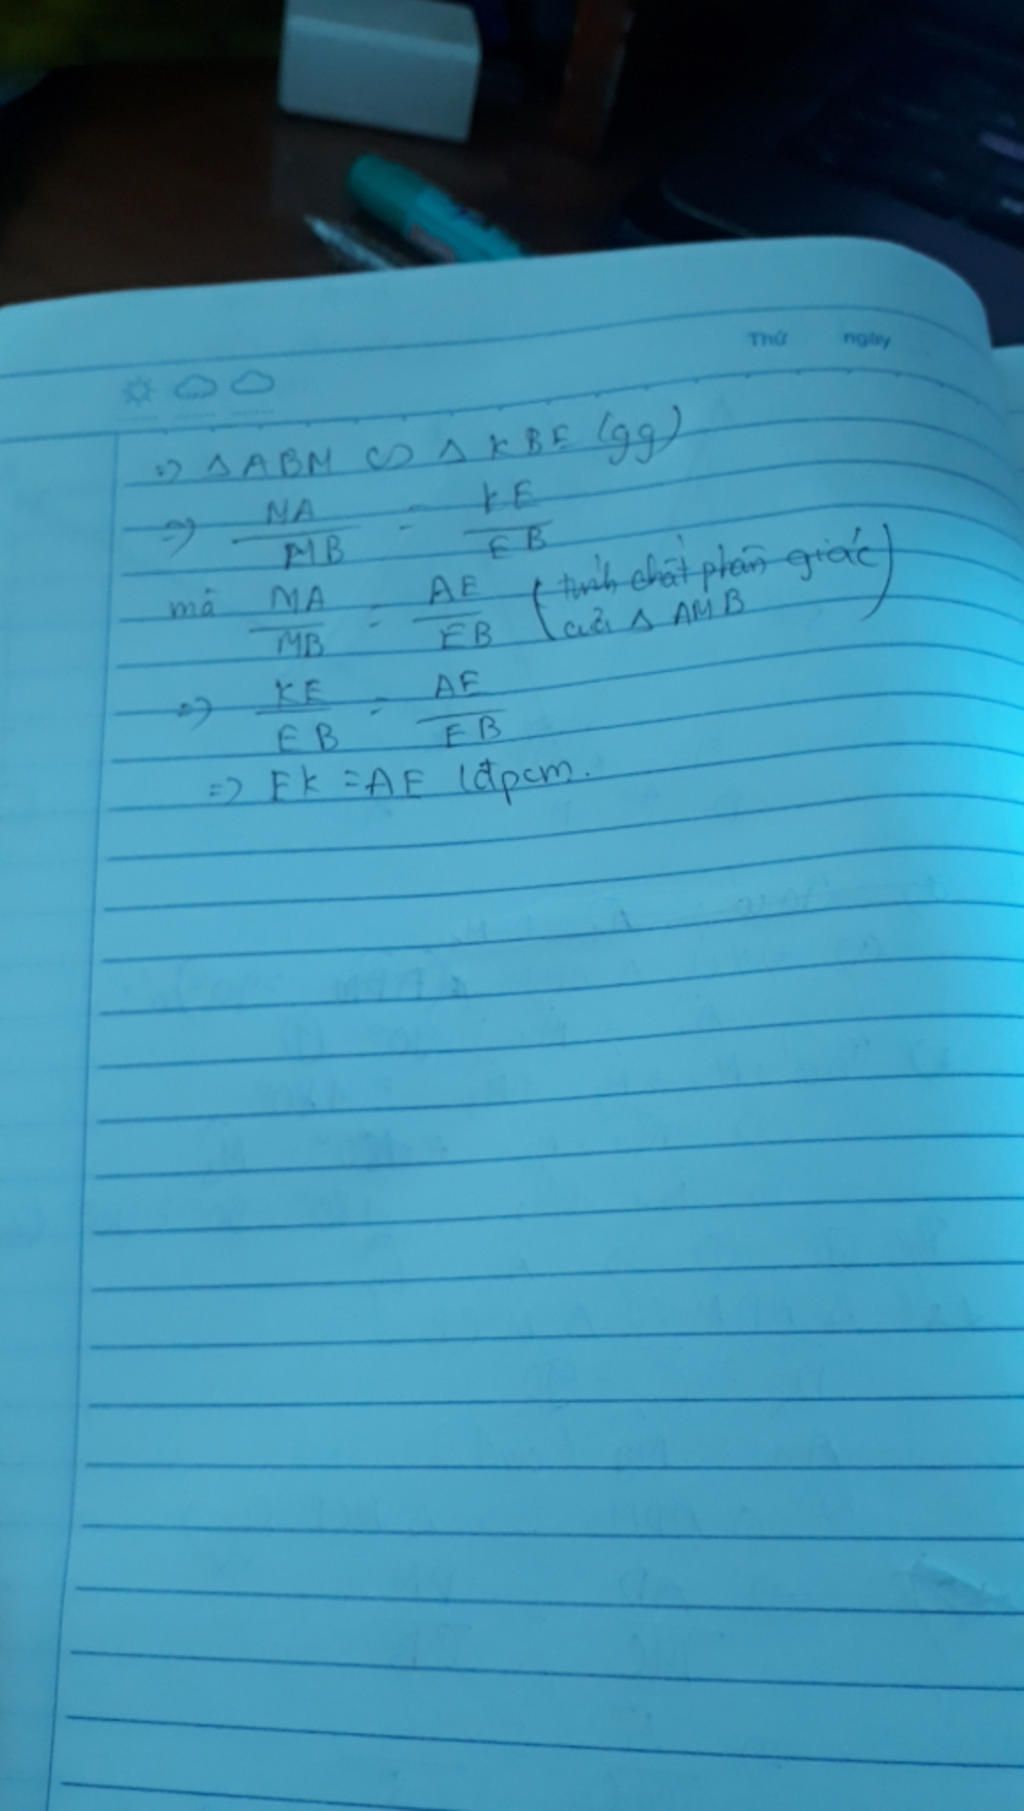 Thứ ngày
=> △ABM ∽ △KBE (gg)
=> MA/MB = KE/EB
mà MA/MB = AE/EB (tính chất phân giác
của △ AMB)
=> KE/EB = AE/EB
=> EK = AE (đpcm.